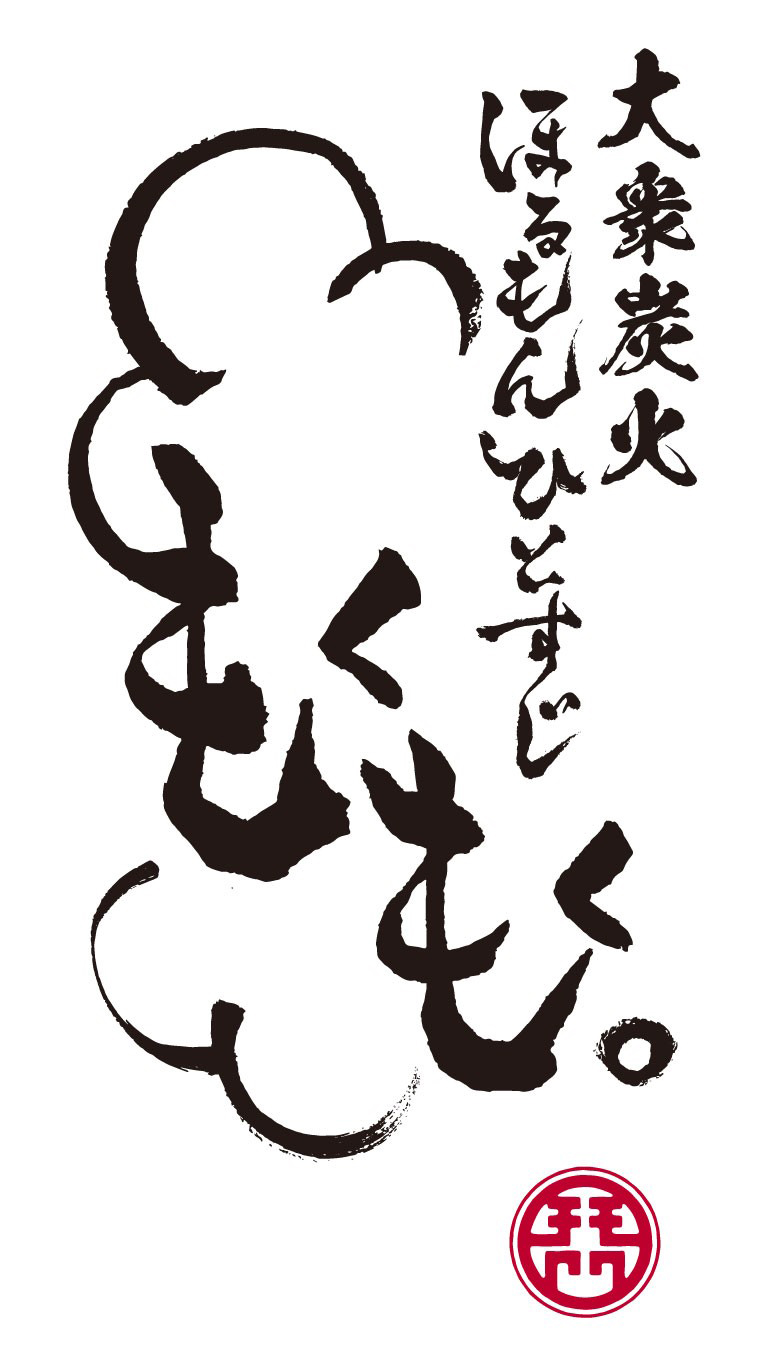 大衆炭火
ほるもんひとすじ
もくもく。